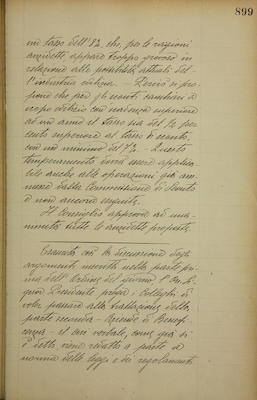 899
un tasso dell'8%, che, per le ragioni
anzidette, appare troppo gravoso in
relazione alle possibilità attuali del-
l'industria edilizia. - Perciò si pro-
pone che per gli sconti cambiari a
scopo edilizio con scadenza superiore
ad un anno il tasso sia del ½ per
cento superiore al tasso di sconto,
con un minimo del 7%. - Questo
temperamento dovrà essere applica-
bile anche alle operazioni già am-
messe dalla Commissione di Sconto
e non ancora eseguite.
Il Consiglio approva ad una-
nimità tutte le anzidette proposte.
Esaurita così la discussione sugli
argomenti inscritti nella parte pri-
ma dell'Ordine del giorno l'On.
Presidente prega i Colleghi di
voler passare alla trattazione della
parte seconda - Aziende di Benefi-
cenza - il cui verbale, come già si
è detto, viene redatto a parte a
norma delle leggi e dei regolamenti